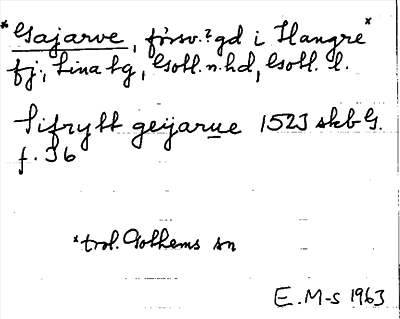 *Gajarve, försv.? gd i Hangre*
fj., Lina tg, Gotl. n. hd, Gotl. l.
Sifrytt geijarue 1523 skb G.
f. 36
*trol. Gothems sn
E. M-s 1963